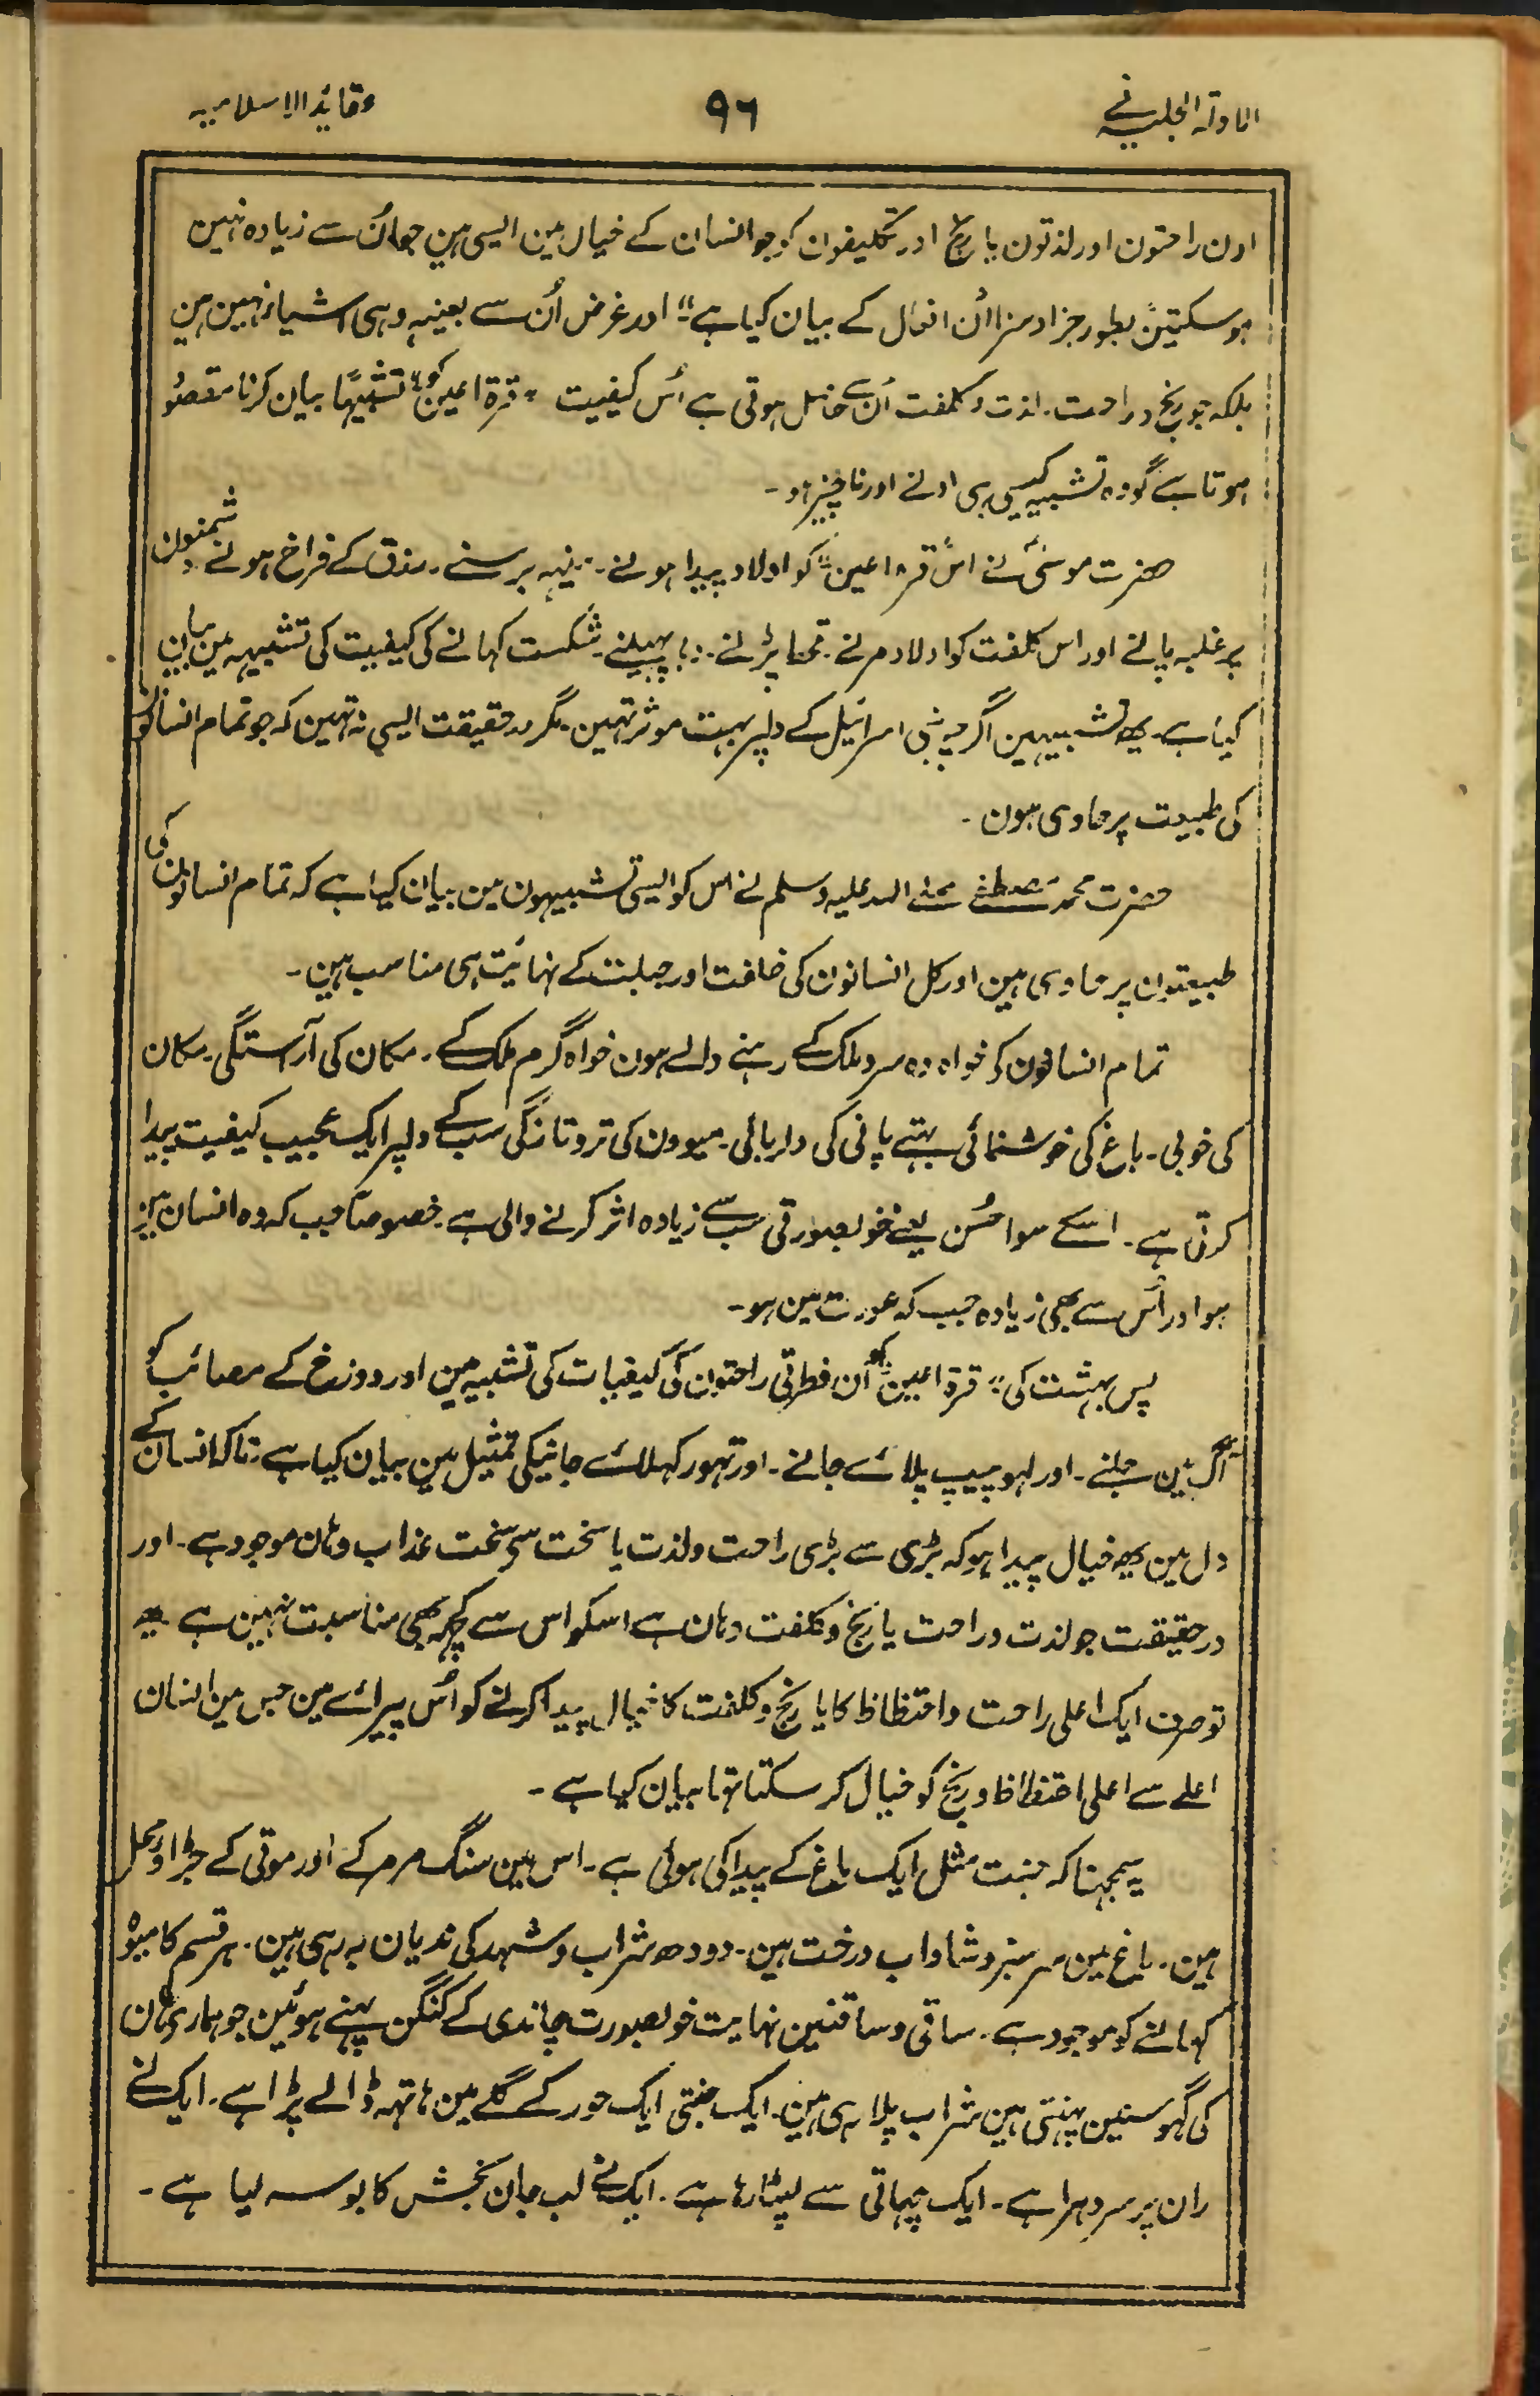 الادلۃ الجلیہ فے
۹۶
عقائد الاسلامیہ
اون راحتون اور لذتون یا رنج اور تکلیفون کو جو انسان کے خیال مین ایسی ہین جو اُن سے زیادہ نہین
ہو سکتین بطور جزا و سزا اُن افعال کے بیان کیا ہے" اور غرض اُن سے بعینہ وہی اشیاء نہین ہین
بلکہ جو رنج و راحت۔ لذت و کلفت اُن سے حاصل ہوتی ہے اُس کیفیت "قرۃ اعین" کو تشبیہًا بیان کرنا مقصود
ہوتا ہے گو وہ تشبیہ کیسی ہی ادنے اور ناچیز ہو۔
حضرت موسیٰ نے اس "قرۃ اعین" کو اولاد پیدا ہونے۔ مینہہ برسنے۔ رزق کے فراخ ہونے دشمنون
پر غلبہ پانے اور اس کلفت کو اولاد مرنے۔ قحط پڑنے۔ وبا پھیلنے۔ شکست کہانے کی کیفیت کی تشبیہہ مین بیان
کیا ہے۔ یھ تشبیہین اگرچہ بنی اسرائیل کے دلپر بہت موثر تہین۔ مگر درحقیقت ایسی نہ تہین کہ جو تمام انسانون
کی طبیعت پر حاوی ہون۔
حضرت محمد مصطفے صلے اللہ علیہ وسلم نے اس کو ایسی تشبیہون مین بیان کیا ہے کہ تمام انسانون کی
طبیعتون پر حاوی ہین اور کل انسانون کی خلقت اور جبلت کے نہائیت ہی مناسب ہین۔
تمام انسانون کو خواہ وہ سرد ملک کے رہنے والے ہون خواہ گرم ملک کے۔ مکان کی آرستگی۔ مکان
کی خوبی۔ باغ کی خوشنمائی بہتے پانی کی دلربائی۔ میوون کی تروتازگی سب کے دلپر ایک عجیب کیفیت پیدا
کرتی ہے۔ اسکے سوا حُسن یعنے خوبصورتی سب سے زیادہ اثر کرنے والی ہے۔ خصوصاً جب کہ وہ انسان مین
ہو اور اُس سے بھی زیادہ جب کہ عورت مین ہو۔
پس بہشت کی "قرۃ اعین" کو اُن فطرتی راحتون کی کیفیات کی تشبیہ مین اور دوزخ کے مصائب کو
آگ مین جلنے۔ اور لہو پیپ پلائے جانے۔ اور تہور کہلائے جانیکی تمثیل مین بیان کیا ہے۔ تاکہ انسان کے
دل مین یھ خیال پیدا ہو کہ بڑی سے بڑی راحت و لذت یا سخت سے سخت عذاب وہان موجود ہے۔ اور
درحقیقت جو لذت و راحت یا رنج و کلفت وہان ہے اسکو اس سے کچہہ بھی مناسبت نہین ہے یھ
تو صرف ایک اعلی راحت و احتظاظ کا یا رنج و کلفت کا خیال پیدا کرنے کو اُس پیرائے مین جس مین انسان
اعلے سے اعلی احتظاظ و رنج کو خیال کر سکتا تہا بیان کیا ہے۔
یہ سمجہنا کہ جنت مثل ایک باغ کے پیدا کی ہوئی ہے۔ اس مین سنگ مرمر کے اور موتی کے جڑاو محل
ہین۔ باغ مین سرسبز و شاداب درخت ہین۔ دودھ شراب و شہد کی ندیان بہ رہی ہین۔ ہر قسم کا میوہ
کہانے کو موجود ہے۔ ساقی و ساقنین نہایت خوبصورت چاندی کے کنگن پہنے ہوئین جو ہماری ہان
کی گہوسنین پہنتی ہین شراب پلا رہی ہین۔ ایک جنتی ایک حور کے گلے مین ہاتہہ ڈالے پڑا ہے۔ ایک نے
ران پر سر دہرا ہے۔ ایک چہاتی سے لپٹا رہا ہے۔ ایک نے لب جان بخش کا بوسہ لیا ہے۔